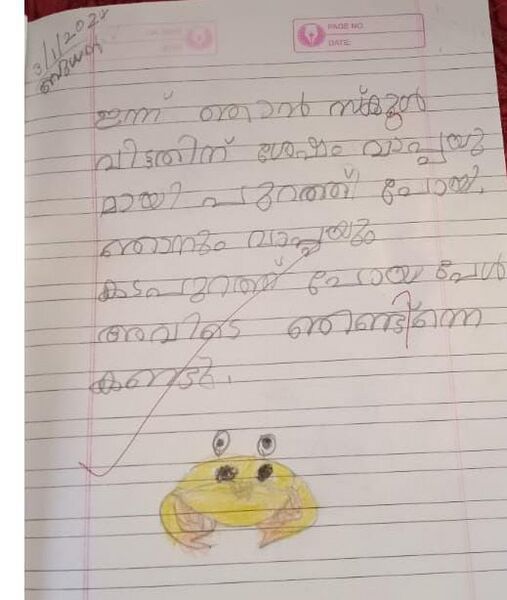 3/1/2024
ബുധൻ
PAGE NO.
DATE:
ഇന്ന് ഞാൻ സ്കൂൾ
വിട്ടതിന് ശേഷം വാപ്പയു
മായി പുറത്ത് പോയി.
ഞാനും വാപ്പയും
കടപുറത്ത് പോയപ്പേൾ
അവിടെ ഞണ്ടിനെ
കണ്ടു.